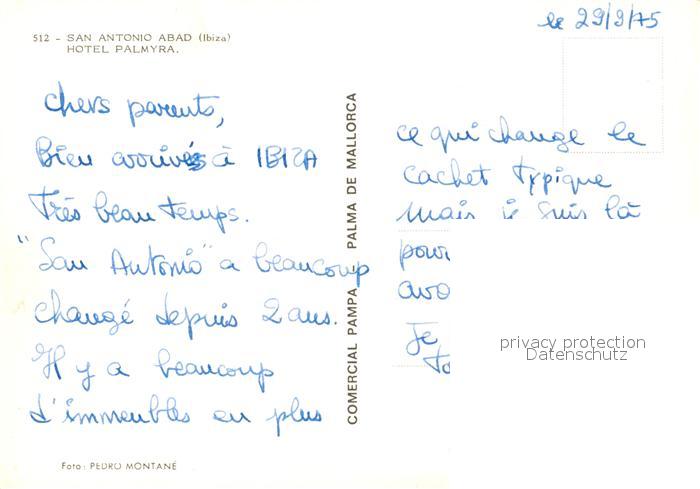 512 - SAN ANTONIO ABAD (Ibiza)
HOTEL PALMYRA.
le 29/9/75
chers parents,
Bien arrivés à IBIZA
Très beau temps.
"San Antonio" a beaucoup
changé depuis 2 ans.
Il y a beaucoup
d'immeubles en plus
COMERCIAL PAMPA - PALMA DE MALLORCA
ce qui change le
cachet typique
Mais je suis là
pour
avo
Je
to
privacy protection
Datenschutz
Foto: PEDRO MONTANÉ